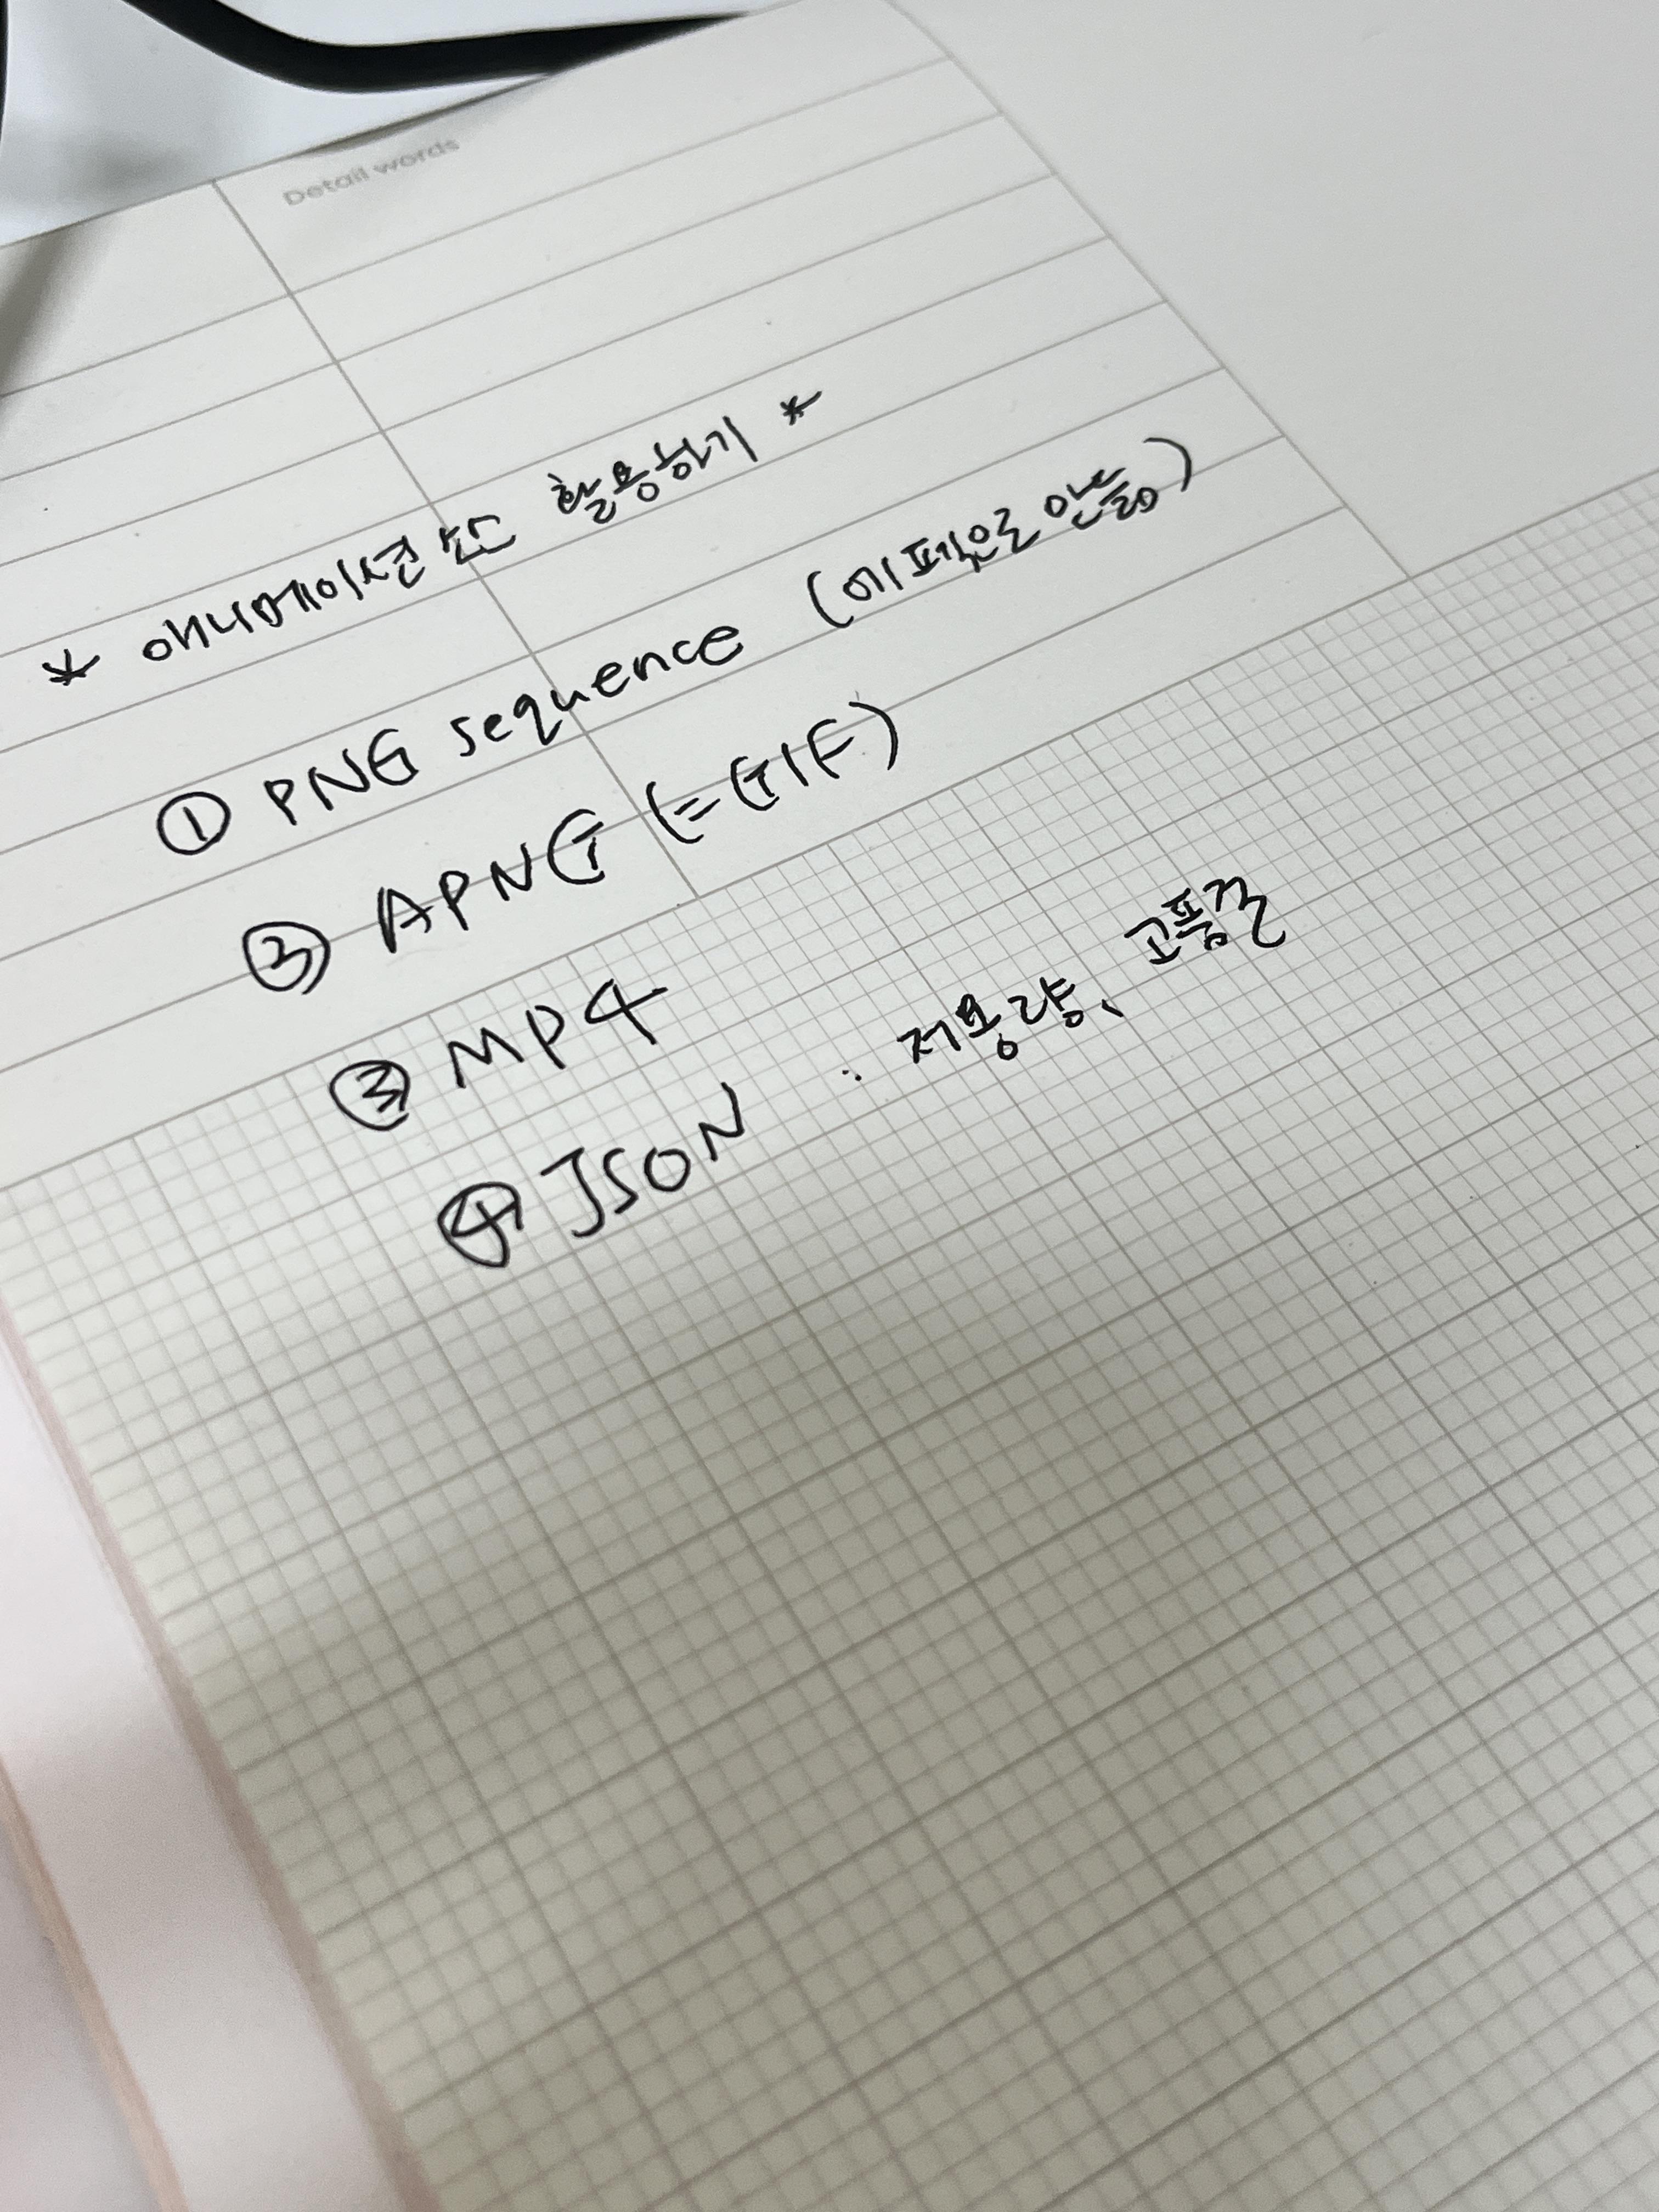 Detail words
* 애니메이션 소스 활용하기 *
① PNG sequence (에펙으로 만듦)
② APNG (=GIF)
③ MP4
④ JSON : 저용량, 고품질